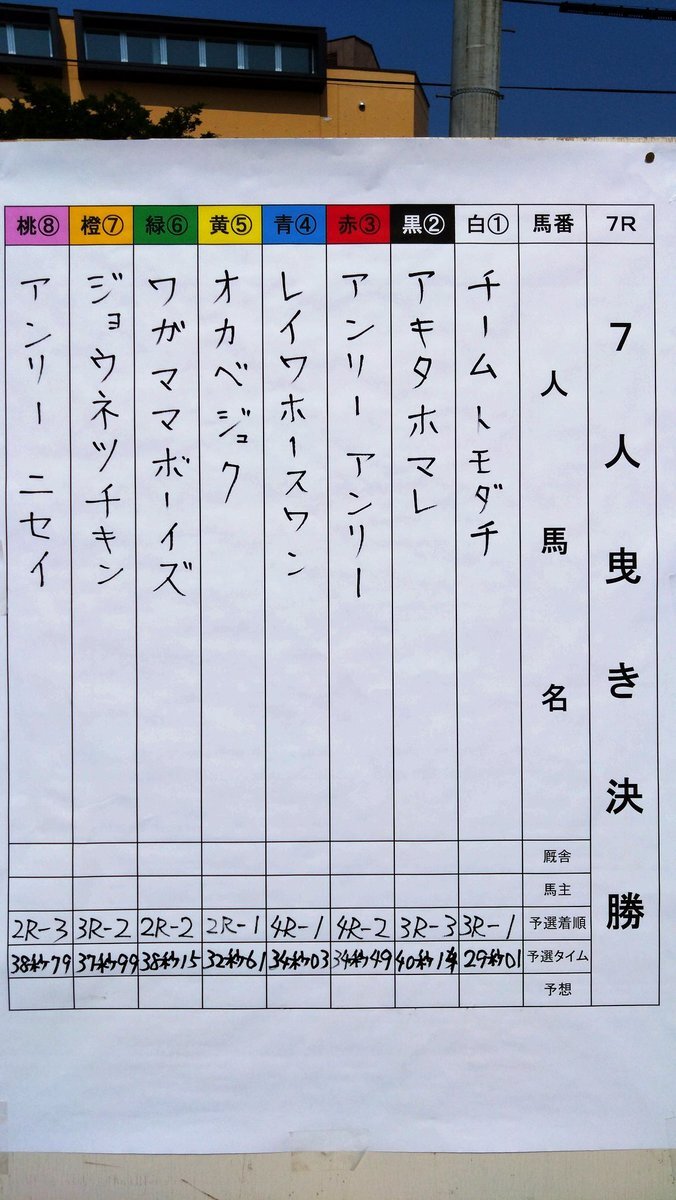 7R
7人曳き決勝
馬番
人馬名
厩舎
馬主
予選着順
予選タイム
予想
白①
チームトモダチ
3R-1
29秒01
黒②
アキタホマレ
3R-3
40秒14
赤③
アンリー アンリー
4R-2
34秒49
青④
レイワホースワン
4R-1
34秒03
黄⑤
オカベジョク
2R-1
32秒61
緑⑥
ワガママボーイズ
2R-2
38秒15
橙⑦
ジョウネツチキン
3R-2
37秒99
桃⑧
アンリー ニセイ
2R-3
38秒79